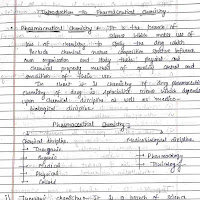 Introduction to Pharmaceutical Chemistry
• Pharmaceutical Chemistry :- It is the branch of
science which makes use of
law of chemistry to study the drug which
include chemical nature composition, structure influence
on an organisation and study their physical and
chemical property method of quality control and
condition of their use.
Heart it is chemistry of drug pharmaceutical
chemistry of drug is specialize science which depends
upon chemical discipline as well as medico-
biological discipline
Pharmaceutical Chemistry
Chemical discipline
Medico biological discipline
→ Inorganic
→ Organic
→ Medical
→ Physical
→ Colloid
→ Pharmacology
→ Toxicology
Inorganic chemistry :- It is a branch of science